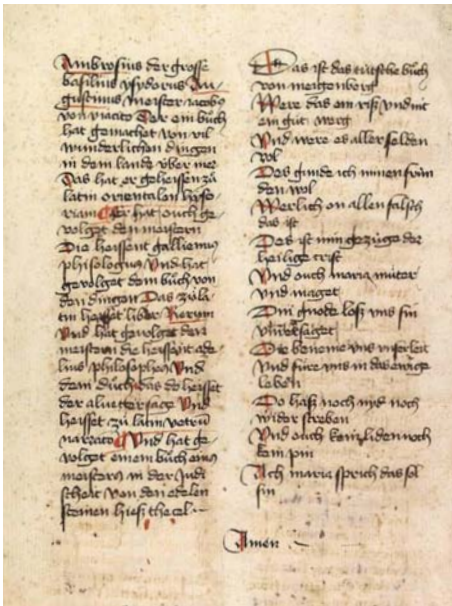 Ambrosius der grosse
basilius ysydorus Au
gustinus meister iacobus
von viaco Der ein buͦch
hat gemachet von vil
wunderlichen dingen
in dem lande vber mer
Das hat er geheissen zuͦ
latin orientalem hysto
riam Er hat ouch ge
volget den meistern
Die heissent gallienus
phisologus Vnd hat
gevolget dem buͦch von
den dingen Das zuͦ la
tin heisset liber Rerum
Vnd hat gevolget dem
meistern die heissent ade
lius philosophus Vnd
dem buͦch das do heisset
der altuetter sage Vnd
heisset zuͦ latin vetru
narracio Vnd hat ge
volget einem buͦch eins
meisters in der Judi
scheit von den edelen
steinen hies thecel
Das ist das tutsche buͦch
von meigenberg
Were das ein risz vnd nit
ein guͦt werg
Vnd were es aller selden
vol
Des gunde ich minen frun
den wol
Werlich on allen falsch
das ist
Des ist min gezuge der
heilige crist
Vnd ouch maria muͦter
vnd maget
Din gnode losz vns sin
vnuersaget
Die beneme vns vnserleit
Vnd fure vns in das ewige
leben
Do hasz noch nyd noch
wider streben
Vnd ouch kein liden noch
kein pin
Ach maria sprich das sol
sin
Amen